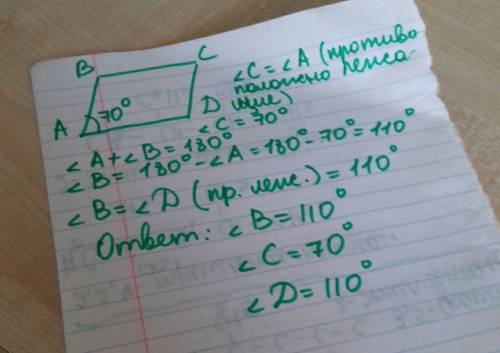 B C
A 70° D
∠C = ∠A (противо
положено лежа
щие)
∠C = 70°
∠A + ∠B = 180°
∠B = 180° - ∠A = 180° - 70° = 110°
∠B = ∠D (пр. леж.) = 110°
Ответ: ∠B = 110°
∠C = 70°
∠D = 110°